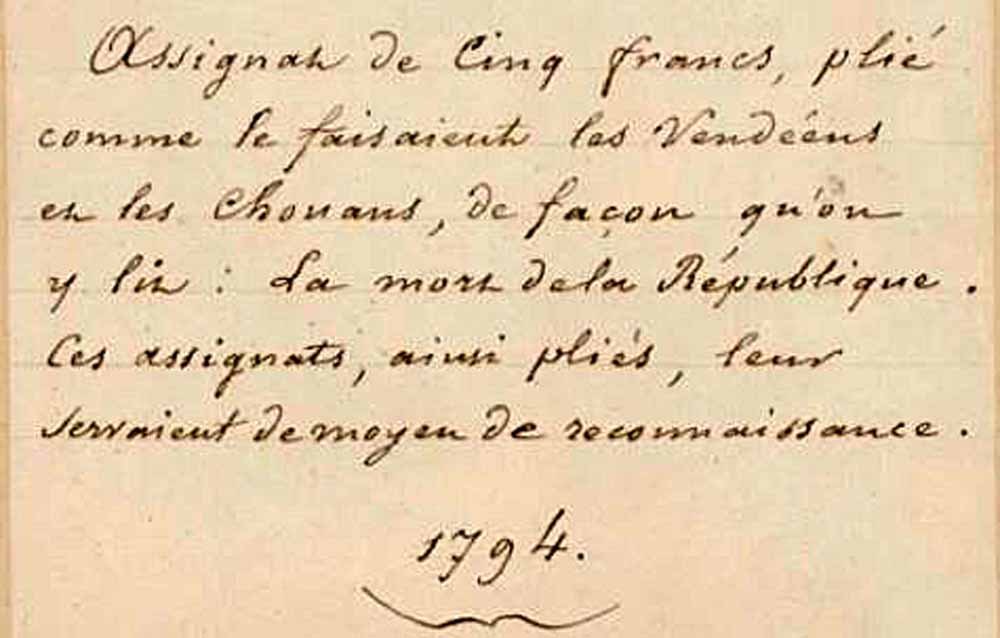 Assignat de Cinq francs, plié
comme le faisaient les Vendéens
et les Chouans, de façon qu'on
y lit : La mort dela République.
Ces assignats, ainsi pliés, leur
servaient de moyen de reconnaissance.
1794.